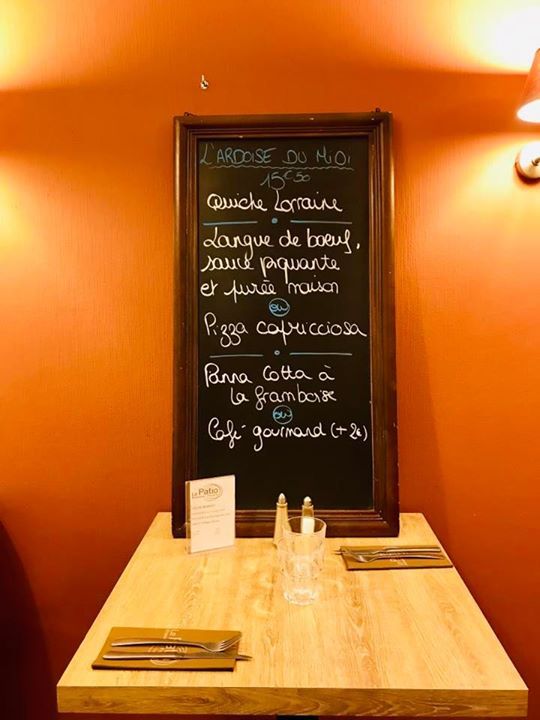 L'ARDOISE DU MIDI
15€50
Quiche Lorraine
Langue de boeuf,
sauce piquante
et purée maison
ou
Pizza capricciosa
Panna Cotta à
la framboise
ou
Café gourmand (+2€)
Le Patio